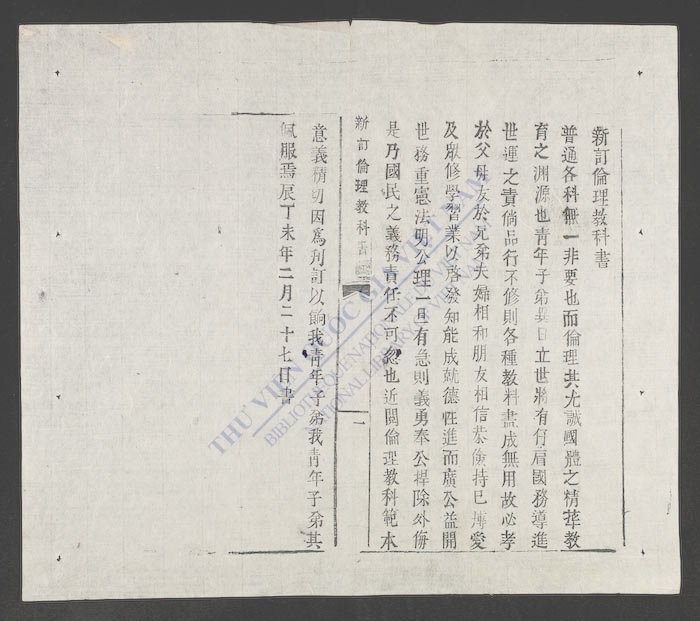 新訂倫理教科書
普通各科無一非要也而倫理其尤誠國體之精華教
育之淵源也靑年子弟異日立世將有何肩國務導進
世運之責倘品行不修則各種教料盡成無用故必孝
於父母友於兄弟夫婦相和朋友相信恭儉持己博愛
及眾修學習業以啓發知能成就德性進而廣公益開
世務重憲法明公理一旦有急則義勇奉公捍除外侮
是乃國民之義務責任不可忽也近閱倫理教科範本
新訂倫理教科書 一
意義精切因爲刋訂以餉我靑年子弟我靑年子弟其
佩服焉辰丁未年二月二十七日書
THƯ VIỆN QUỐC GIA VIỆT NAM
BIBLIOTHÈQUE NATIONALE DU VIETNAM
NATIONAL LIBRARY OF VIETNAM